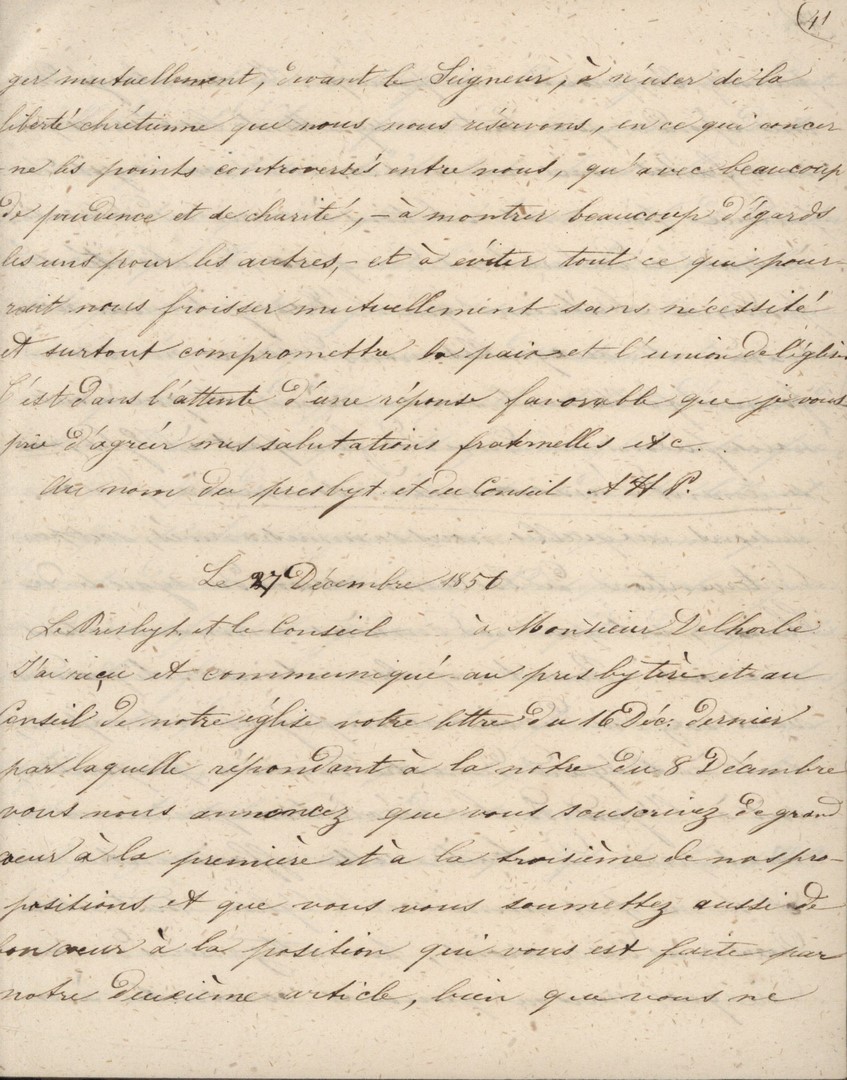 41
ger mutuellement, devant le Seigneur, à n'user de la
liberté chrétienne que nous nous réservons, en ce qui concer
ne les points controversés entre nous, qu'avec beaucoup
de prudence et de charité, – à montrer beaucoup d'égards
les uns pour les autres, – et à eviter tout ce qui pour-
rait nous froisser mutuellement sans nécessité
et surtout compromettre la paix et l'union de l'église
C'est dans l'attente d'une réponse favorable que je vous
prie d'agréer mes salutations fraternelles etc.
Au nom du presbyt. et du Conseil A H P.
Le 27 Décembre 1850
Le Presbyt. et le Conseil à Monsieur Delhorbe
J'ai reçu et communiqué au presbytère et au
Conseil de notre église votre lettre du 16 Déc: dernier
par laquelle répondant à la nôtre du 8 Décembre
vous nous annoncez que vous souscrivez de grand
cœur à la première et à la troisième de nos pro-
positions et que vous vous soumettez aussi de
bon cœur à la position qui vous est faite par
notre deuxième article, bien que vous ne